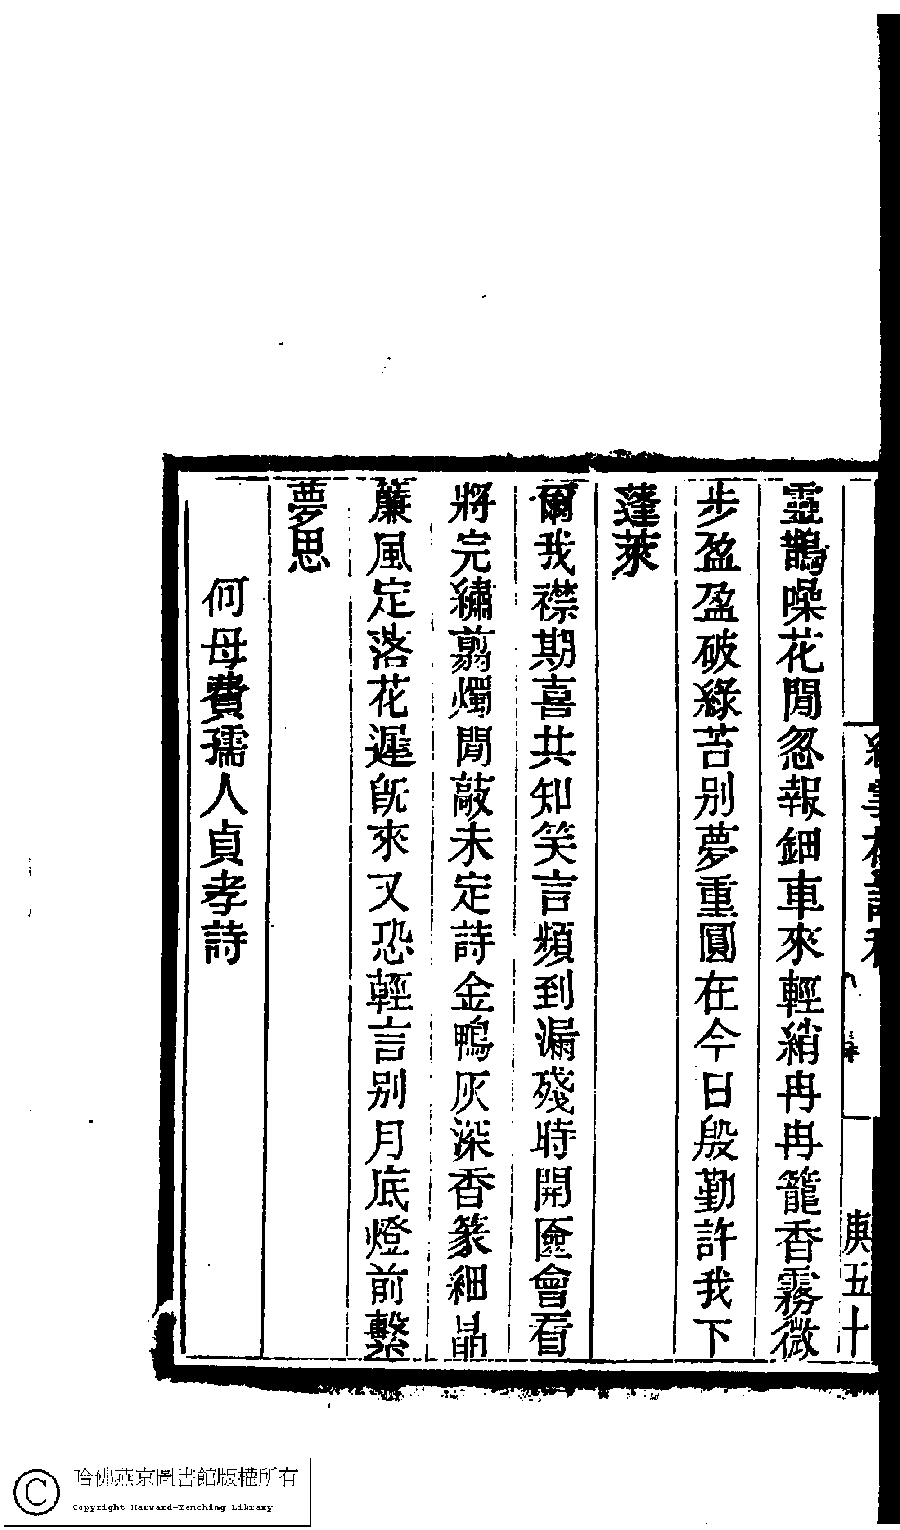 靈鵲噪花閒忽報鈿車來輕綃冉冉籠香霧微
步盈盈破綠苔別夢重圓在今日殷勤許我下
蓬萊
爾我襟期喜共知笑言頻到漏殘時開匳會看
將完繡翦燭閒敲未定詩金鴨灰深香篆細晶
簾風定落花遲旣來又恐輕言別月底燈前繫
夢思
何母費孺人貞孝詩
庚五十
哈佛燕京圖書館版權所有
Copyright Harvard-Yenching Library